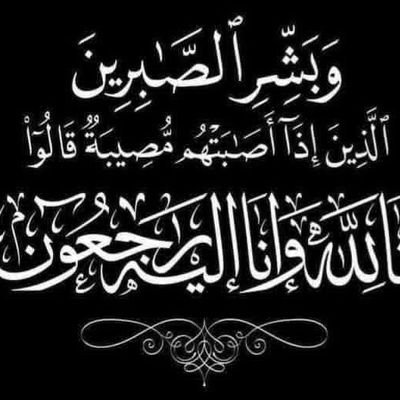 وَبَشِّرِ ٱلصَّٰبِرِينَ
ٱلَّذِينَ إِذَآ أَصَٰبَتْهُم مُّصِيبَةٌ قَالُوٓاْ
نَا لِلَّهِ وَإِنَّا إِلَيْهِ رَٰجِعُونَ